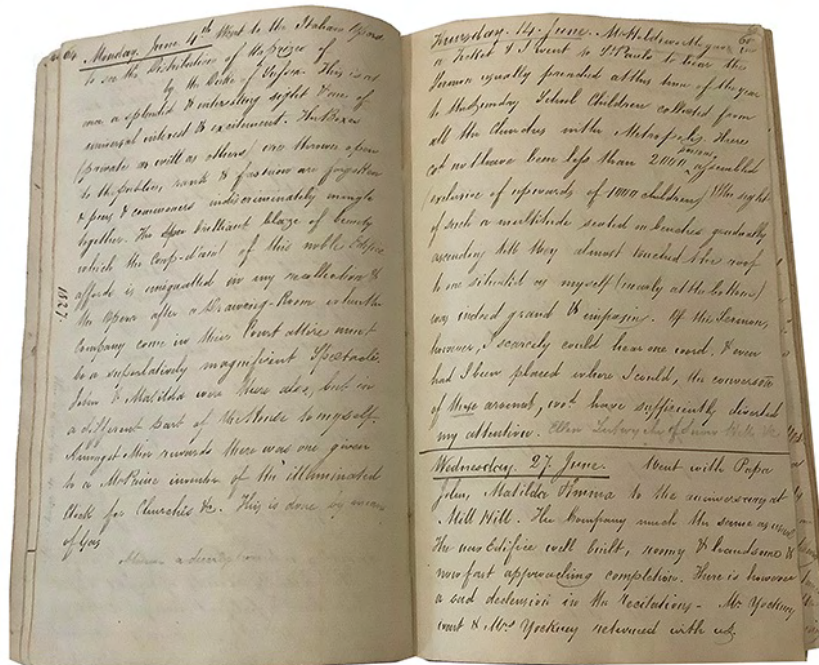 64 Monday. June 4th Went to the Italian Opera
to see the Distribution of the prizes of
by the Duke of Sussex. This is as
usual a splendid & interesting sight & one of
universal interest & excitement. The Boxes
(private as well as others) are thrown open
to the public, rank & fashion are forgotten
& peers & commoners indiscriminately mingle
together. The brilliant blaze of beauty
which the coup-d'oeil of this noble Edifice
affords is unequalled in my recollection &
the Opera after a Drawing-Room when the
Company come in their Court attire must
be a superlatively magnificent Spectacle.
John & Matilda were there also, but in
a different part of the House to myself.
Amongst other rewards there was one given
to a Mr Paine inventor of the illuminated
Clock for Churches &c. This is done by means
of Gas
1827.
Thursday. 14. June. Mr Holdsworth gave me 65
a Ticket & I went to St Pauls to hear the
Sermon usually preached at this time of the year
to the Sunday School Children collected from
all the Churches in the Metropolis. There
cod not have been less than 2000 persons assembled
(exclusive of upwards of 1000 children) The sight
of such a multitude seated in benches gradually
ascending till they almost touched the roof
to one situated as myself (nearly at the bottom)
was indeed grand & imposing. Of the Sermon,
however, I scarcely could hear one word, & even
had I been placed where I could, the conversatn
of those around, wod have sufficiently diverted
my attention.
Wednesday. 27. June. Went with Papa
John, Matilda & Emma to the anniversary at
Mill Hill. The Company much the same as usual
The new Edifice well built, roomy & handsome &
now fast approaching completion. There is however
a sad declension in the recitations - Mr Yockney
went & Mrs Yockney returned with us.